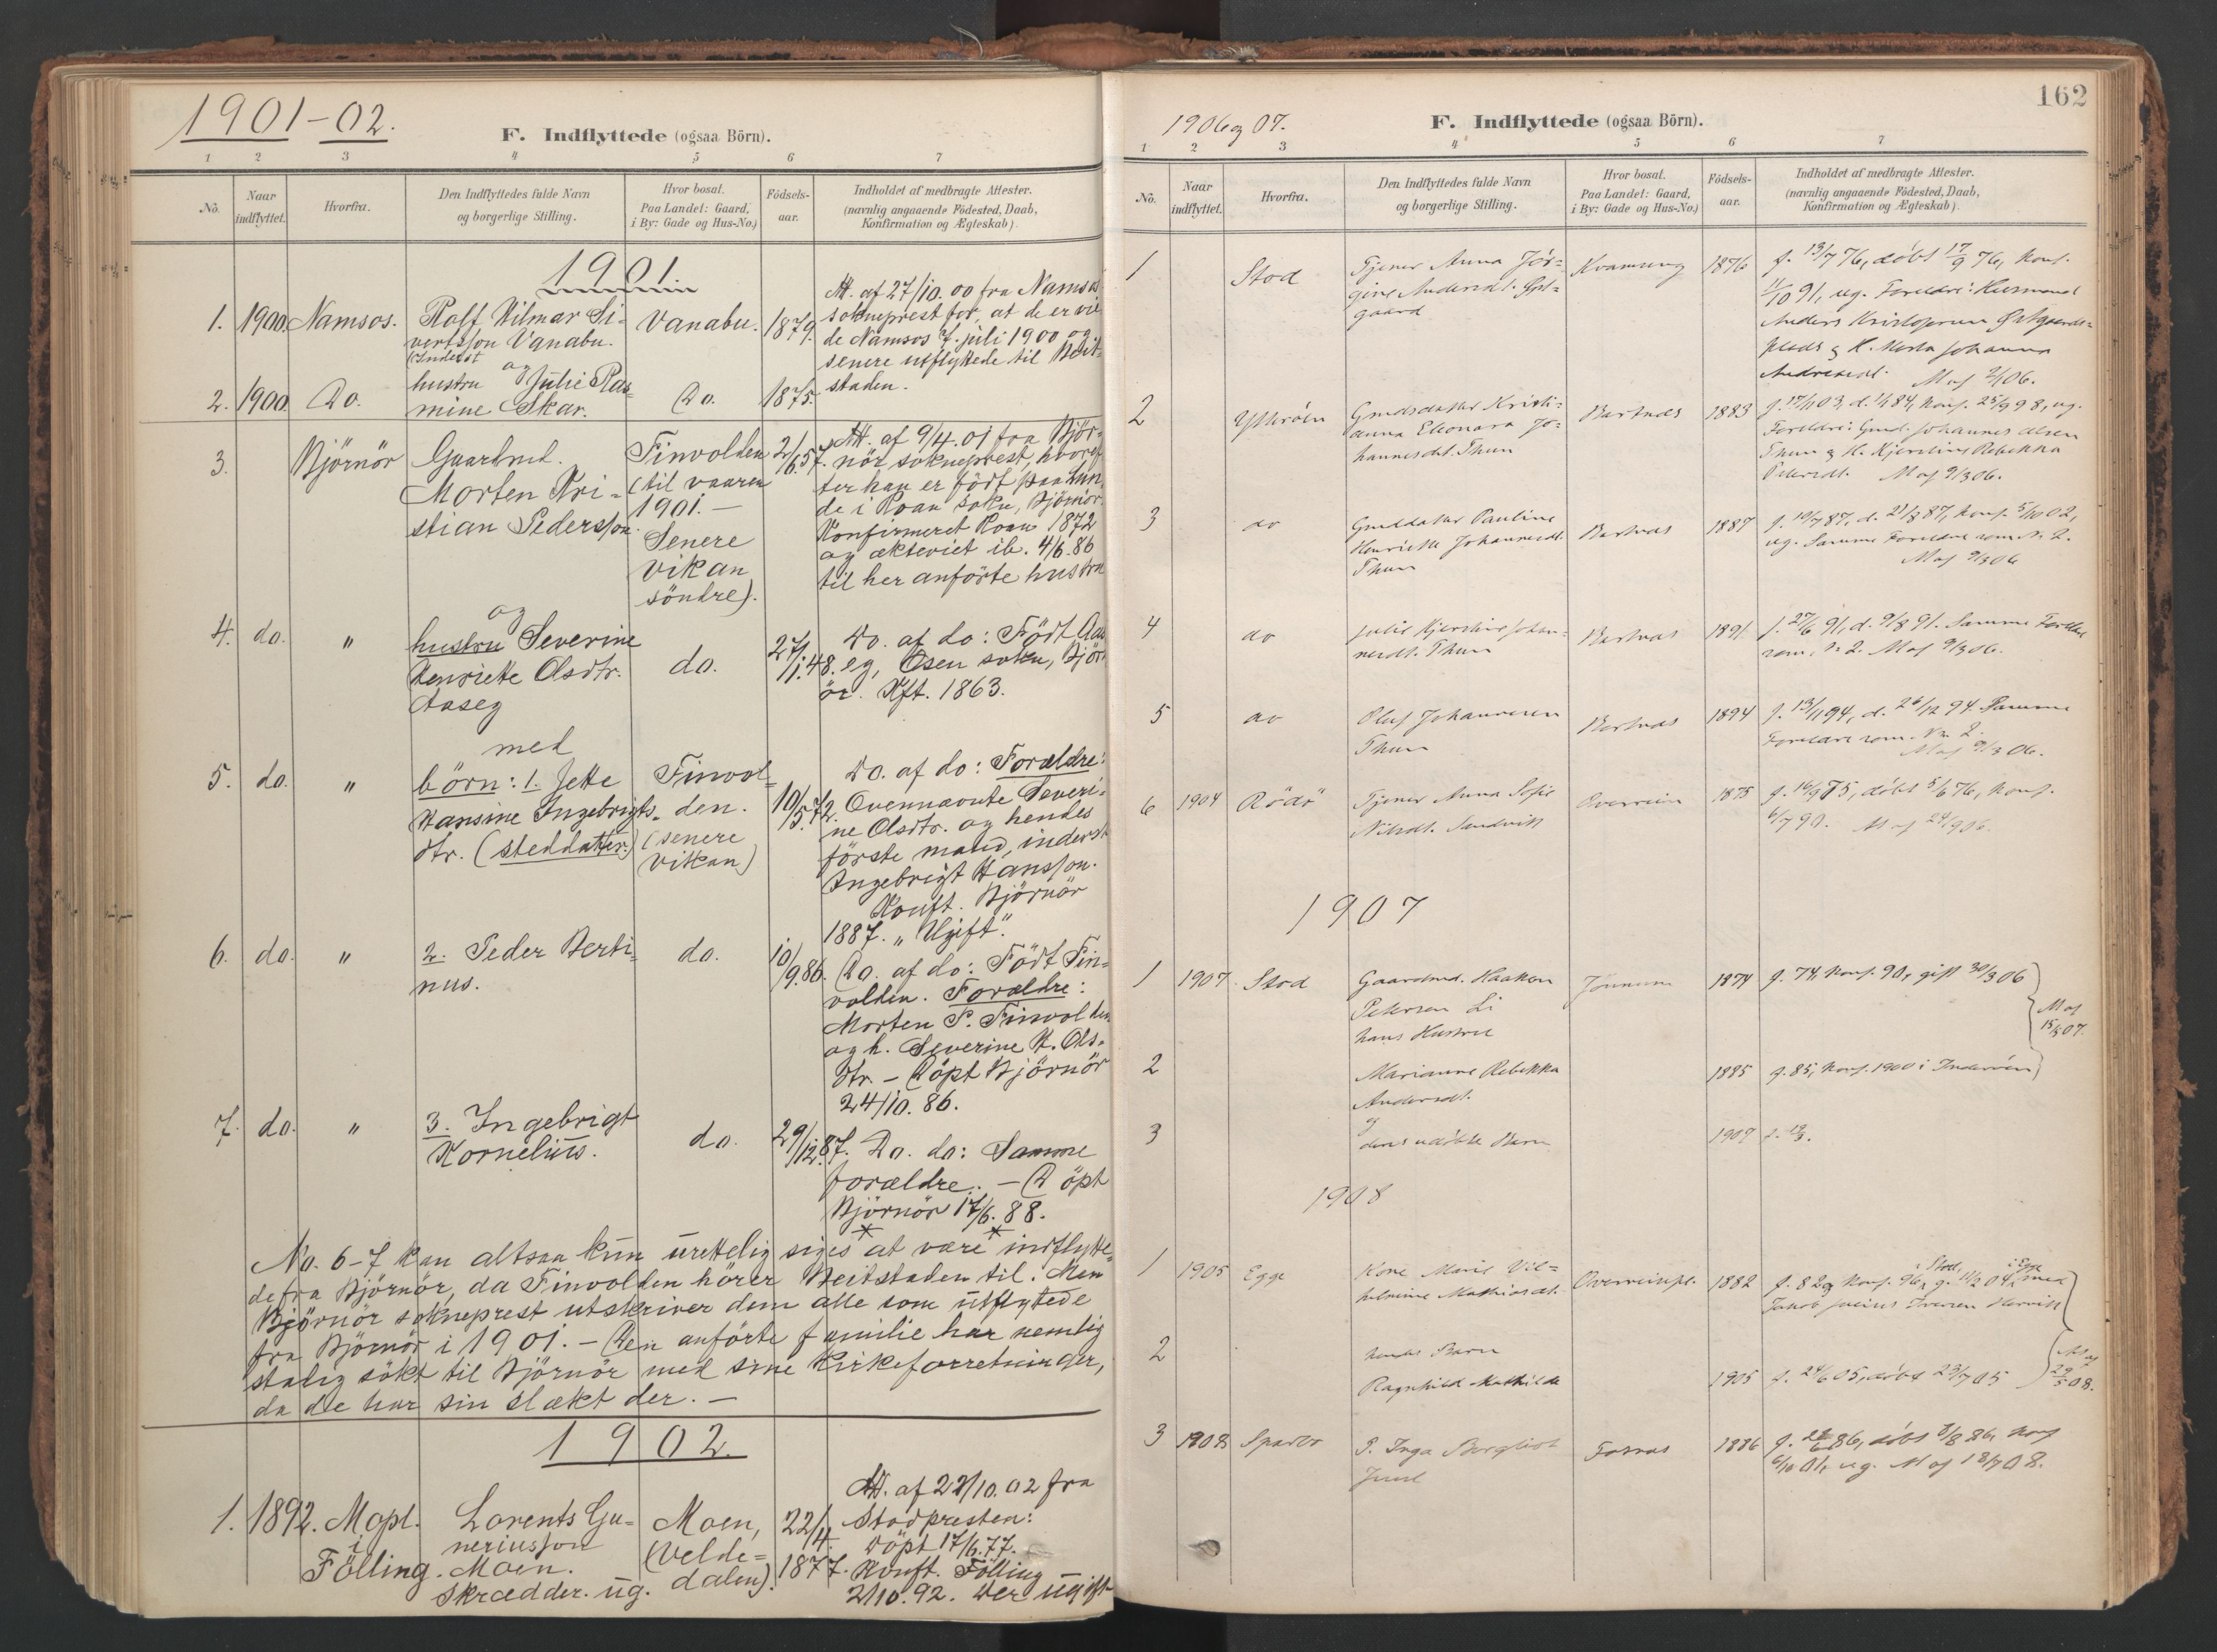 1901-02.
F. Indflyttede (ogsaa Börn).
1 2 3 4 5 6 7
No. Naar indflyttet. Hvorfra. Den Indflyttedes fulde Navn og borgerlige Stilling. Hvor bosat. Paa Landet: Gaard, i By: Gade og Hus-No.) Födsels-aar. Indholdet af medbragte Attester. (navnlig angaaende Födested, Daab, Konfirmation og Ægteskab).
1901.
1. 1900. Namsos. Rolf Hilmar Si-
vertsson Vanabu.
(Inderst
og
Vanabu. 1879.
Att. af 27/10.00 fra Namsos
sokneprest for, at de er vie
de Namsos 7. juli 1900 og
senere utflyttede til Beit-
staden.
2. 1900. Do. hustru Julie Ras-
mine Skar.
Do. 1875.
3. Björnör Gaardmd.
Morten Kri-
stian Pedersson.
Finvolden
(til vaaren
1901.-
Senere
vikan
söndre).
2/6.57.
Att. af 9/4.01 fra Björ-
nör sokneprest, hvoref
ter han er födt paa Sun
de i Roan sokn, Björnör
Konfirmeret Roan 1872
og ækteviet ib. 4/6.86
til her anförte hustru
4. do. " og
hustru Severine
Henriette Olsdtr.
Aaseg
do. 27/1.48.
Do. af do: Födt Aas
eg, Osen sokn, Björ
ör. Kft. 1863.
med
5. do. " börn: 1. Jette
Hansine Ingebrigts-
dtr. (steddatter.)
Finvol-
den.
(senere
vikan)
10/5.72.
Do. af do: Forældre:
Ovennævnte Severi-
ne Olsdtr. og hendes
förste mand, inderst
Ingebrigt Hansson.
Konft. Björnör
1887. "Ugift".
6. do. " 2. Peder Berti-
nus.
do. 10/9.86.
Do. af do: Födt Fin-
volden. Forældre:
Morten P. Finvolden
og h. Severine H. Ols-
dtr. - Döpt Björnör
24/10.86.
7. do. " 3. Ingebrigt
Kornelius.
do. 29/12.87.
Do. do: Samme
forældre. - Döpt
Björnör 17/6.88.
No. 6-7 kan altsaa kun urettelig siges at være indflytte-
de fra Björnör, da Finvolden hörer Beitstaden til. Men
Björnör sokneprest utskriver dem alle som utflyttede
fra Björnör i 1901. - Den anförte familie har nemlig
stadig sökt til Björnör med sine kirkeforretninger,
da de har sin slækt der. -
1902.
1. 1892. Mopl.
i
Fölling.
Lorents Gu-
neriusson
Moen.
Skrædder. ug.
Moen,
(Velde-
dalen).
22/4.
1877.
Att. af 22/10.02 fra
Stodpresten:
Döpt 17/6.77.
Konft. Fölling
2/10.92. Der ugift
162
1906 og 07.
F. Indflyttede (ogsaa Börn).
1 2 3 4 5 6 7
No. Naar indflyttet. Hvorfra. Den Indflyttedes fulde Navn og borgerlige Stilling. Hvor bosat. Paa Landet: Gaard, i By: Gade og Hus-No.) Födsels-aar. Indholdet af medbragte Attester. (navnlig angaaende Födested, Daab, Konfirmation og Ægteskab).
1 Stod Tjener Anna Jör-
gine Andersdt.
gaard
Kvamseng 1876
f. 13/7 76, döbt 17/9 76, konf.
11/10 91, ug. Foreldre: Husmand
Anders Kristofersen Östgaards-
plads & H. Marta Johanna
Andreasdt.
2 Ytteröen Gmdsdatter Kristi-
anna Eleonora Jo-
hannesdt. Thun
Bartnes 1883
konf. 25/9 98, ug.
Foreldre: Gmd. Johannes Olsen
Thun & H. Kjerstine Rebekka
Petersdt. M. af 9/3 06.
3 do Gmddatter Pauline
Henriette Johannesdt.
Thun
Bartnes 1887
f. 19/7 87, d. 21/8 87, konf. 5/10 02,
ug. Samme Foreldre som N. 2.
M. af 9/3 06
4 do Julie Kjerstine Johan-
nesdt. Thun
Bartnes 1891
f. 27/6 91, d. 9/8 91. Samme Foreldre
som N. 2. M. af 9/3 06.
5 do Oluf Johannesen
Thun
Bartnes 1894
f. 13/11 94, d. 26/12 94. Samme
Foreldre som N. 2.
M. af 9/3 06.
6 1904 Rödö Tjener Anna Sofie
Nilsdt. Sandvik
Overrein 1875
f. 16/9 75, döbt 5/6 76, konf.
6/7 90. M. af 24/9 06.
1907
1 1907. Stod Gaardmd. Haakon
Petersen Li
hans Hustru
Jönnum 1874
f. 74, konf. 90, gift 30/3 06
M. af
15/5 07.
2 Marianne Rebekka
Andersdt.
1885 f. 85, konf. 1900 i Inderöen
3 &
deres udöbte Barn
1907 f. 12/3.
1908
1 1905 Egge Kone Marie Vil-
helmine Mathiasdt.
Overreinpl. 1882
i Stod, i Egge
f. 82, konf. 96, g. 11/2 04, med
Jakob Julius Iversen Hervik
2 hendes Barn
Ragnhild Mathilde
1905 f. 24/6 05, döbt 23/7 05
M. af
29/5 08.
3 1908 Sparbo P. Inga Bergliot
Juul
Fosnes 1886
f. 22/6 86, döbt 8/8 86, konf
6/10 01, ug. M. af 18/7 08.